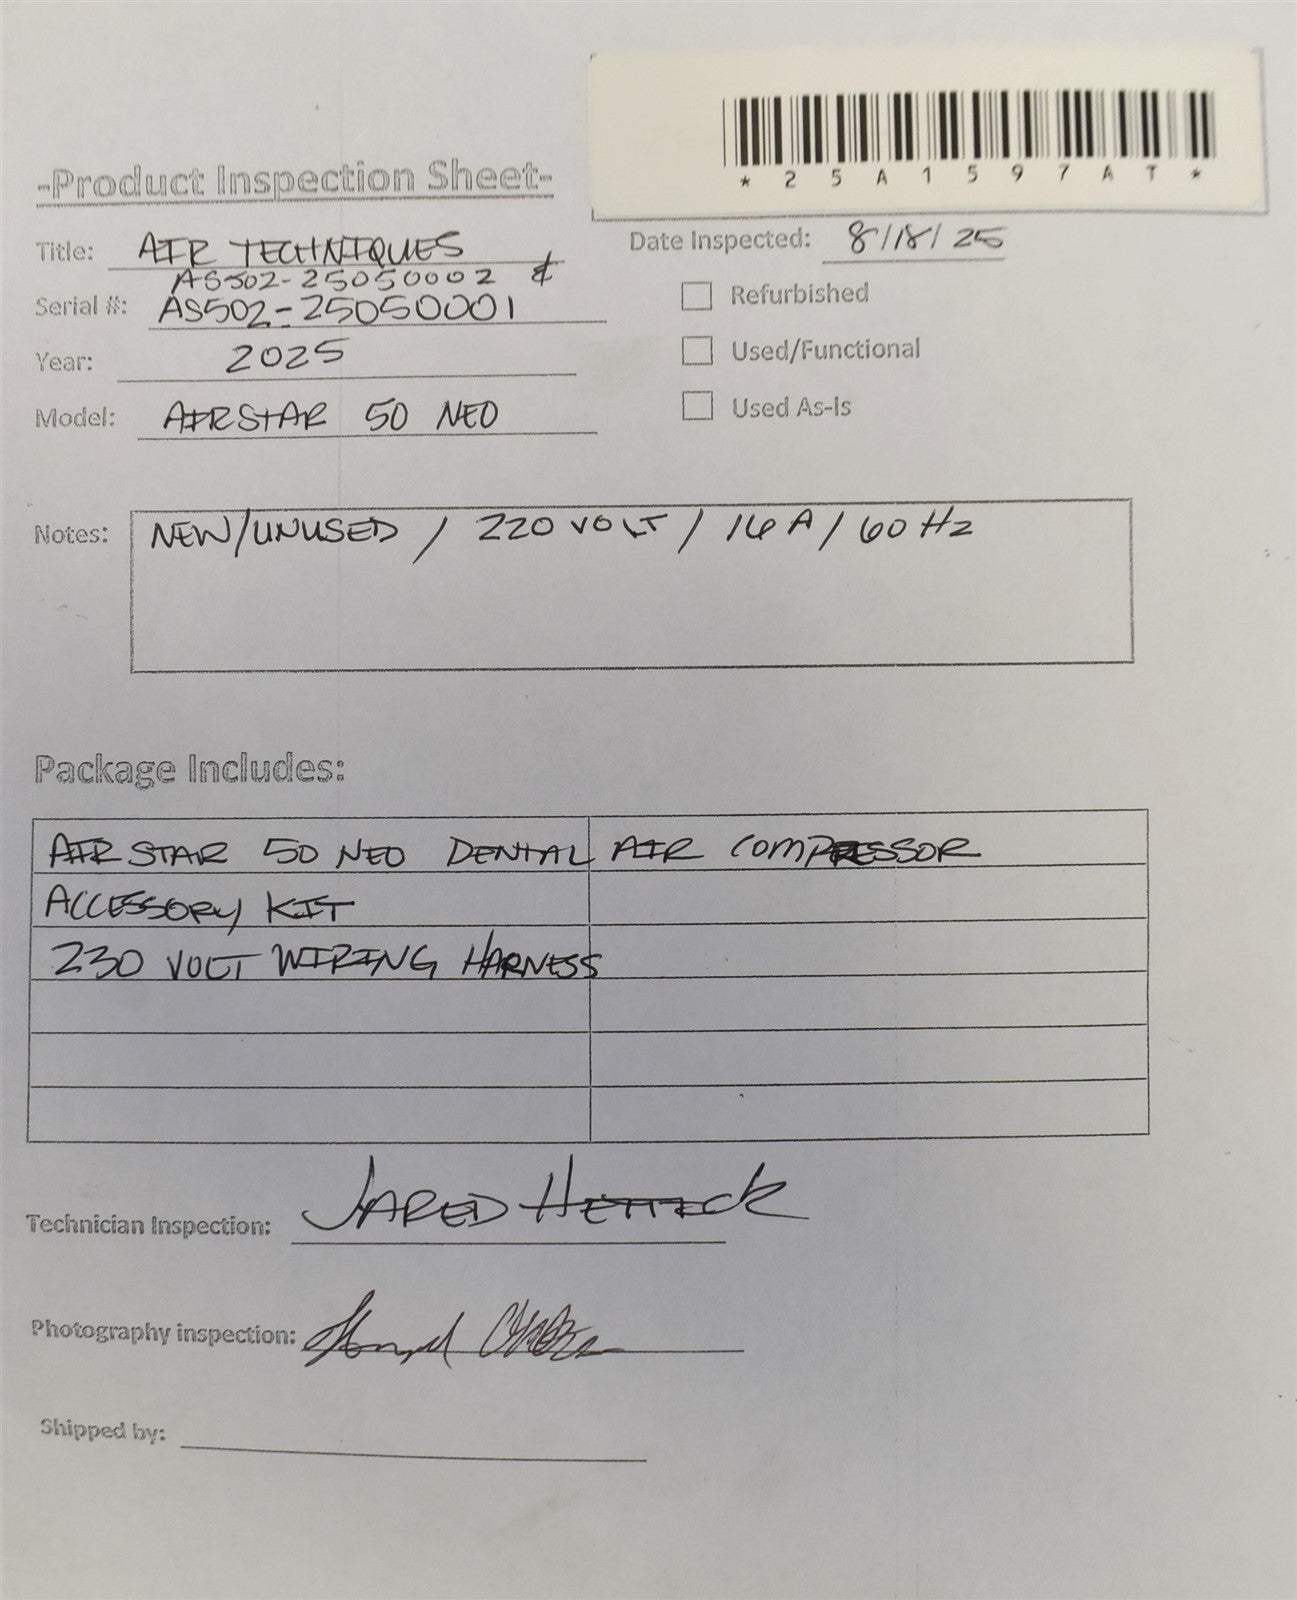 *25A1597AT*
-Product Inspection Sheet-
Title: AIR TECHNIQUES
Date Inspected: 8/18/25
AS502-25050002 &
Serial #: AS502-25050001
Refurbished
Year: 2025
Used/Functional
Model: AIRSTAR 50 NEO
Used As-Is
Notes: NEW/UNUSED / 220 VOLT / 16 A / 60 Hz
Package Includes:
AIR STAR 50 NEO DENTAL AIR COMPRESSOR
ACCESSORY KIT
230 VOLT WIRING HARNESS
Technician Inspection: JARED
Photography inspection:
Shipped by: